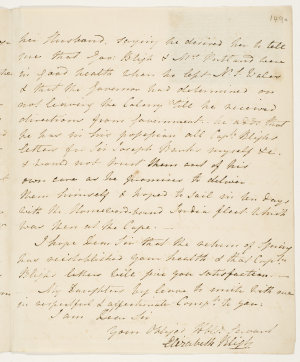 her Husband, saying he desired her to tell
you that Gov. Bligh & Mrs Putland were
in good health when he left N. S. Wales
& that the Governor had determined on
not leaving the Colony 'till he received
directions from Government. he adds that
he has in his possession all Capt. Blighs
letters for Sir Joseph Banks myself &c.
& would not trust them out of his
own care as he promises to deliver
them himself & hoped to sail in ten days
with the Homeward-bound India fleet which
was then at the Cape. —
I hope Dear Sir that the return of Spring
has reestablished your health & that Capt.
Blighs letters will give you satisfaction. —
My Daughters beg leave to unite with me
in respectful & affectionate Compts. to you.
I am Dear Sir
Your Obliged Hble. Servant
Elizabeth Bligh